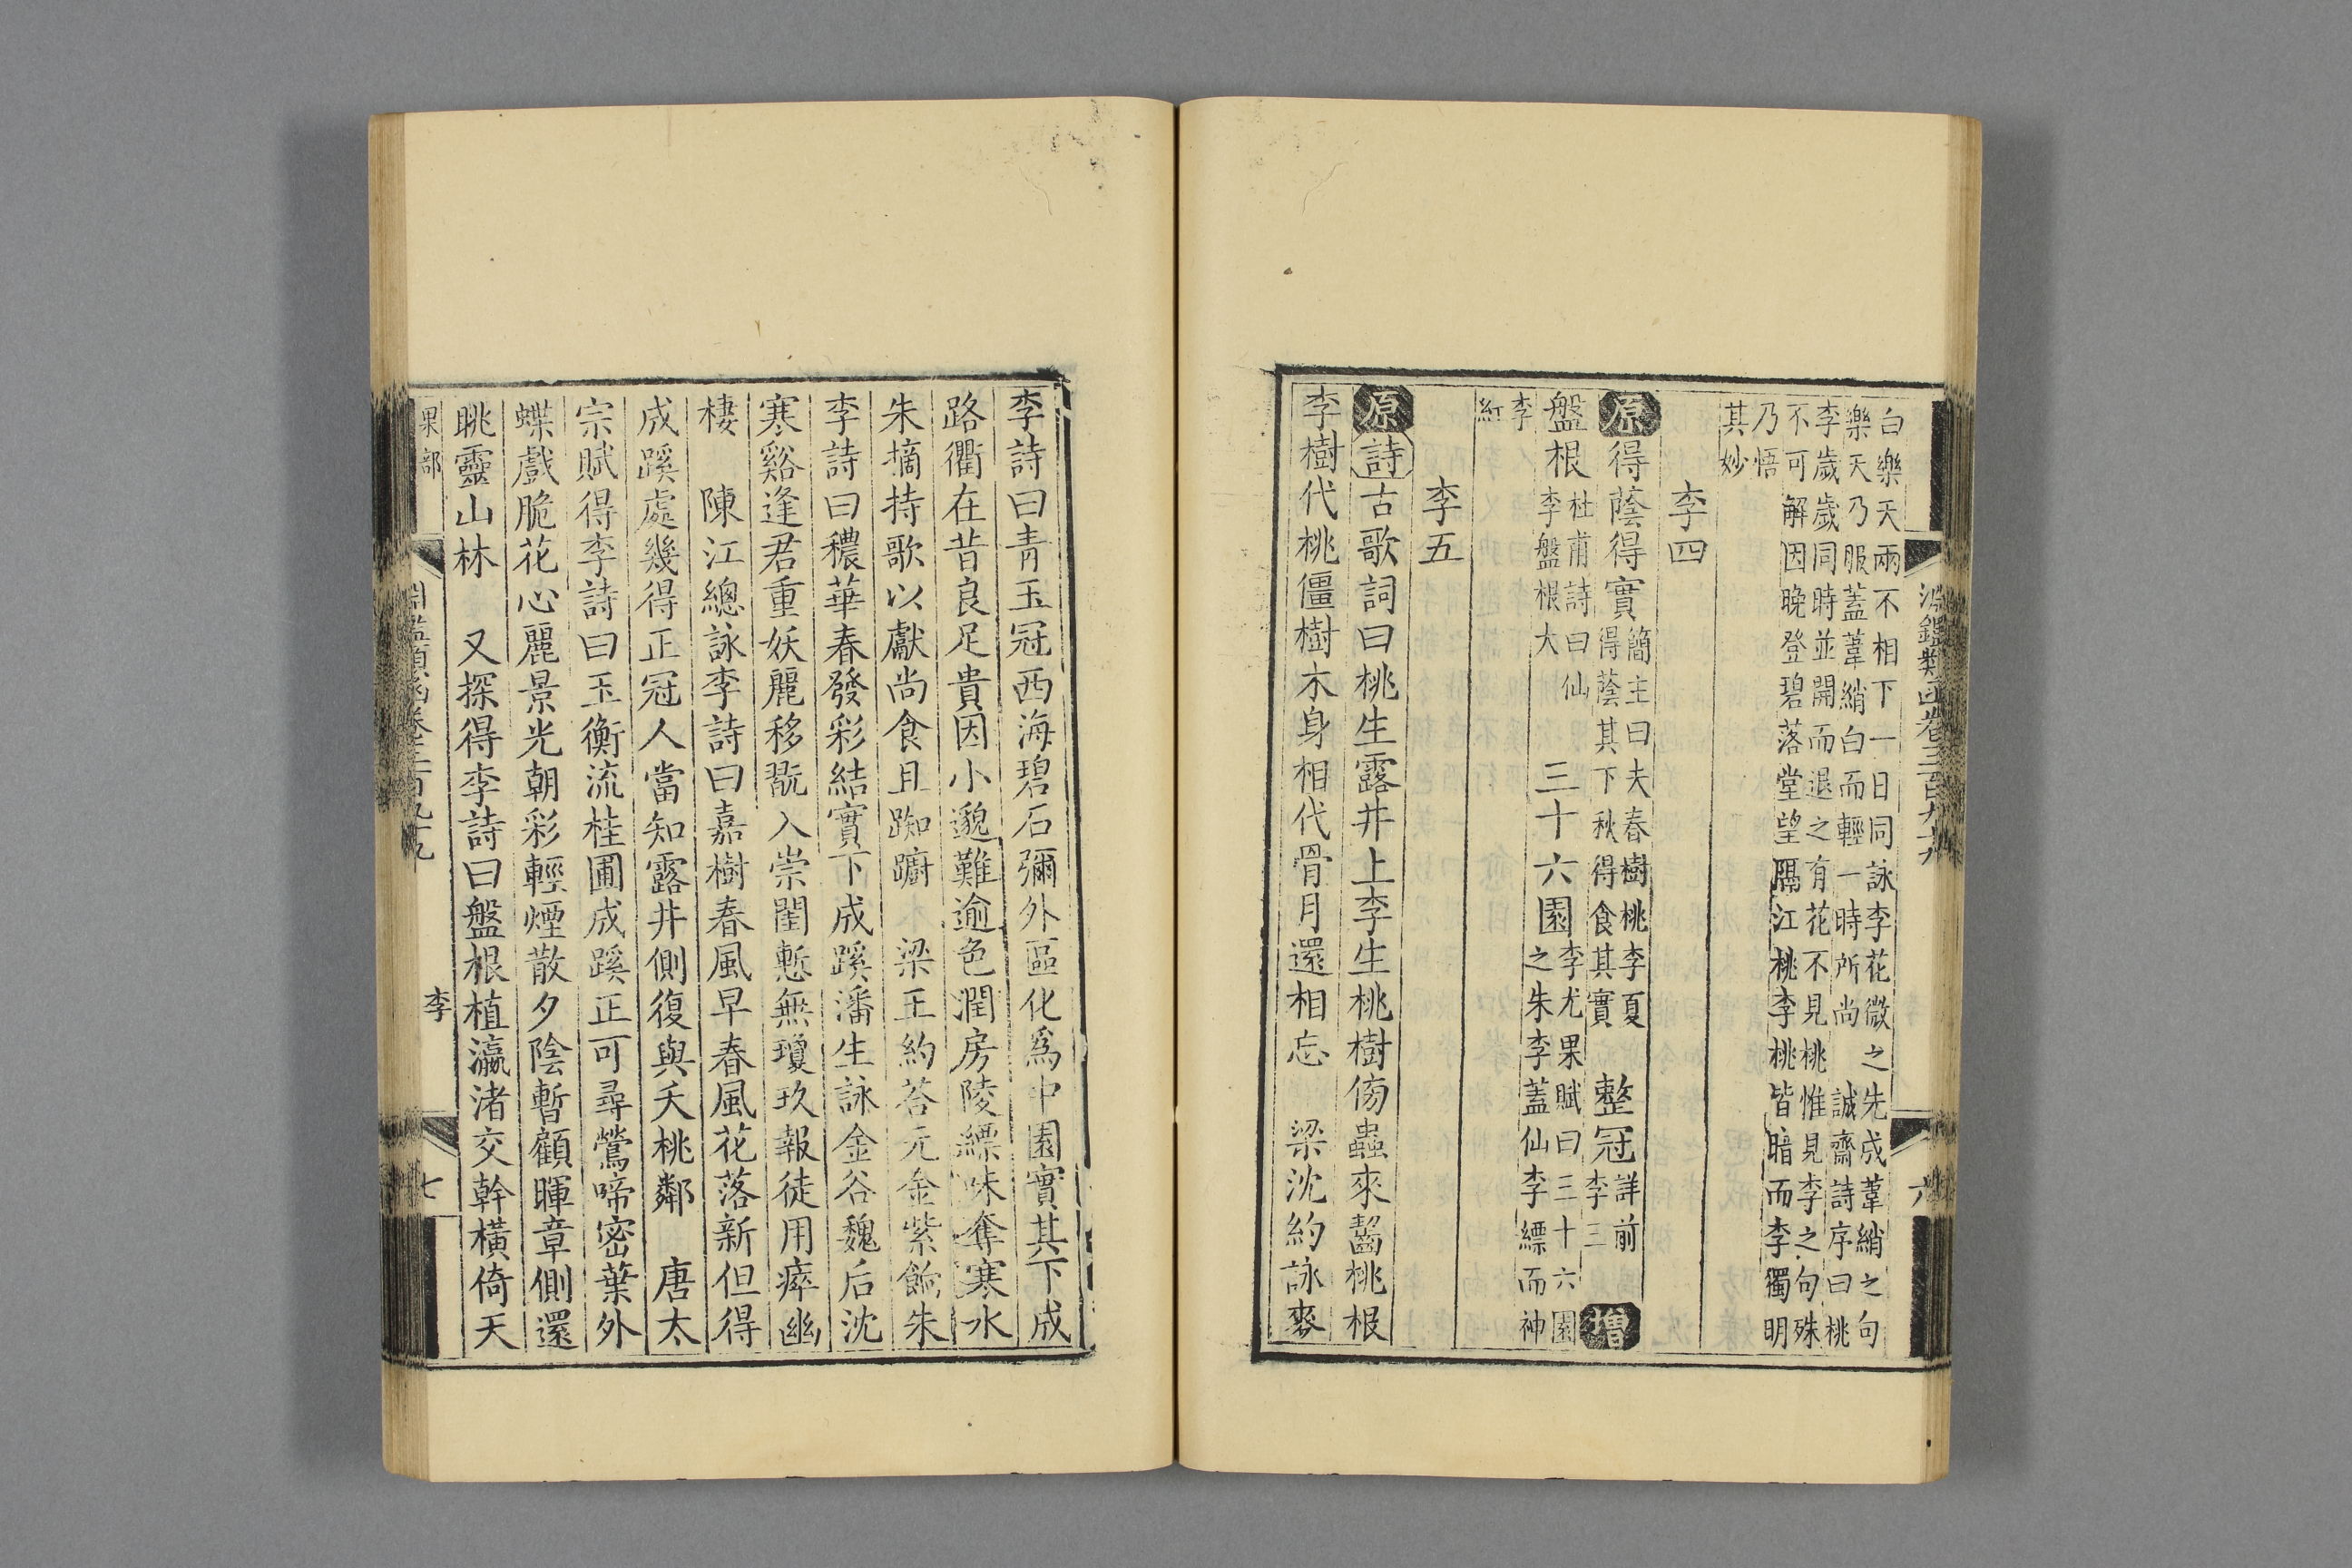 淵鑑類函卷三百九十九 六
白樂天兩不相下一日同詠李花微之先成葦綃之句
樂天乃服蓋葦綃白而輕一時所尚 誠齋詩序曰桃
李歲歲同時並開而退之有花不見桃惟見李之句殊
不可解因晚登碧落堂望隔江桃李桃皆暗而李獨明
乃悟
其妙
李四
原得蔭得實 簡主曰夫春樹桃李夏 得蔭其下秋得食其實 整冠 詳前 李三 增
盤根 杜甫詩曰仙 李盤根大 三十六園 李尤果賦曰三十六園 之朱李蓋仙李縹而神
李
紅
李五
原詩古歌詞曰桃生露井上李生桃樹傍蟲來齧桃根
李樹代桃僵樹木身相代骨月還相忘 梁沈約詠麥
李詩曰青玉冠西海碧石彌外區化爲中園實其下成
路衢在昔良足貴因小邈難逾色潤房陵縹味奪寒水
朱摘持歌以獻尚食且踟躕 梁王約荅元金紫餉朱
李詩曰穠華春發彩結實下成蹊潘生詠金谷魏后沈
寒谿逢君重妖麗移翫入崇閨慙無瓊玖報徒用瘁幽
棲 陳江總詠李詩曰嘉樹春風早春風花落新但得
成蹊處幾得正冠人當知露井側復與夭桃鄰 唐太
宗賦得李詩曰玉衡流桂圃成蹊正可尋鶯啼密葉外
蝶戲脆花心麗景光朝彩輕煙散夕陰暫顧暉章側還
眺靈山林 又探得李詩曰盤根植瀛渚交幹橫倚天
果部 淵鑑類函卷三百九十九 李 七